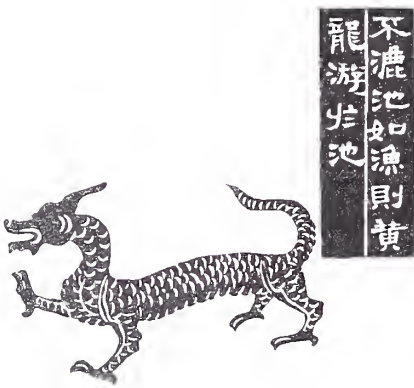 不漉池如漁則黃
龍游於池